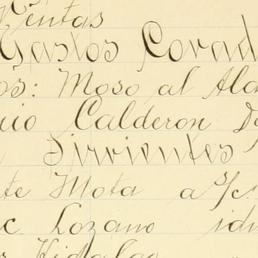 Rentas
Gastos Corad
os: Moso al Ala
io Calderon D
Sirvientes
te Mota a/c
c Lozano id
r Hidalgo